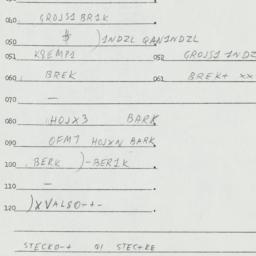 040 GROJS1 BR1K
050 $ )1NDZL QAN1NDZL
051 KREMP1 052 GROJS1 1NDZ
060 BREK 061 BREK+ XX
070 —
080 HOJX3 BARK
090 OFM7 HOJXN BARK
100 BERK )-BER1K
110 —
120 )XVALSO-+-
STECKO-+ 01 STEC+RE